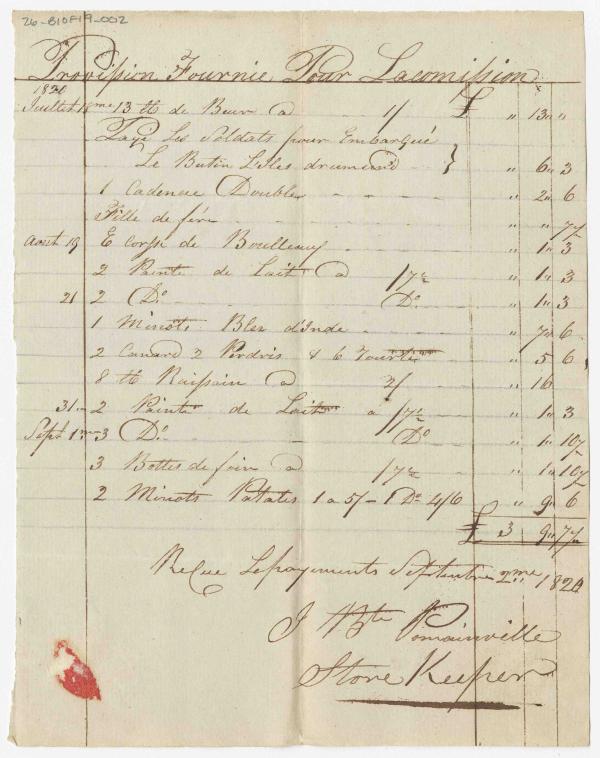 26-B10F19-002
Provission Fournie Pour Lacomission
1820
Juillet 18me 13 lb de Beur a 1/ £ " 13 " "
Payé Les Soldats pour Embarqué
Le Butin L'Iles drumond } " 6 " 3
1 Cadenue Double " 2 " 6
Fille de fére " " 7½
Aout 19 E corps de Boulleaux " 1 " 3
2 Painte de Lait a /7½ " 1 " 3
21 2 Do. Do. " 1 " 3
1 Minots Bles d'Inde " 7 " 6
2 Canard 2 Perdris & 6 Tourte " 5 6
8 lb Raissain a 2/ " 16
31 2 Painte de Lait a /7½ " 1 " 3
Sept 1me 3 Do. Do " 1 " 10½
3 Bottes de foin a /7½ " 1 " 10½
2 Minots Patates 1 a 5/ - 1 Do 4/6 " 9 " 6
£ 3 9 " 7½
Reçue Lepayements Septembre 2me 1820
J Bte Pomainville
Store Keeper